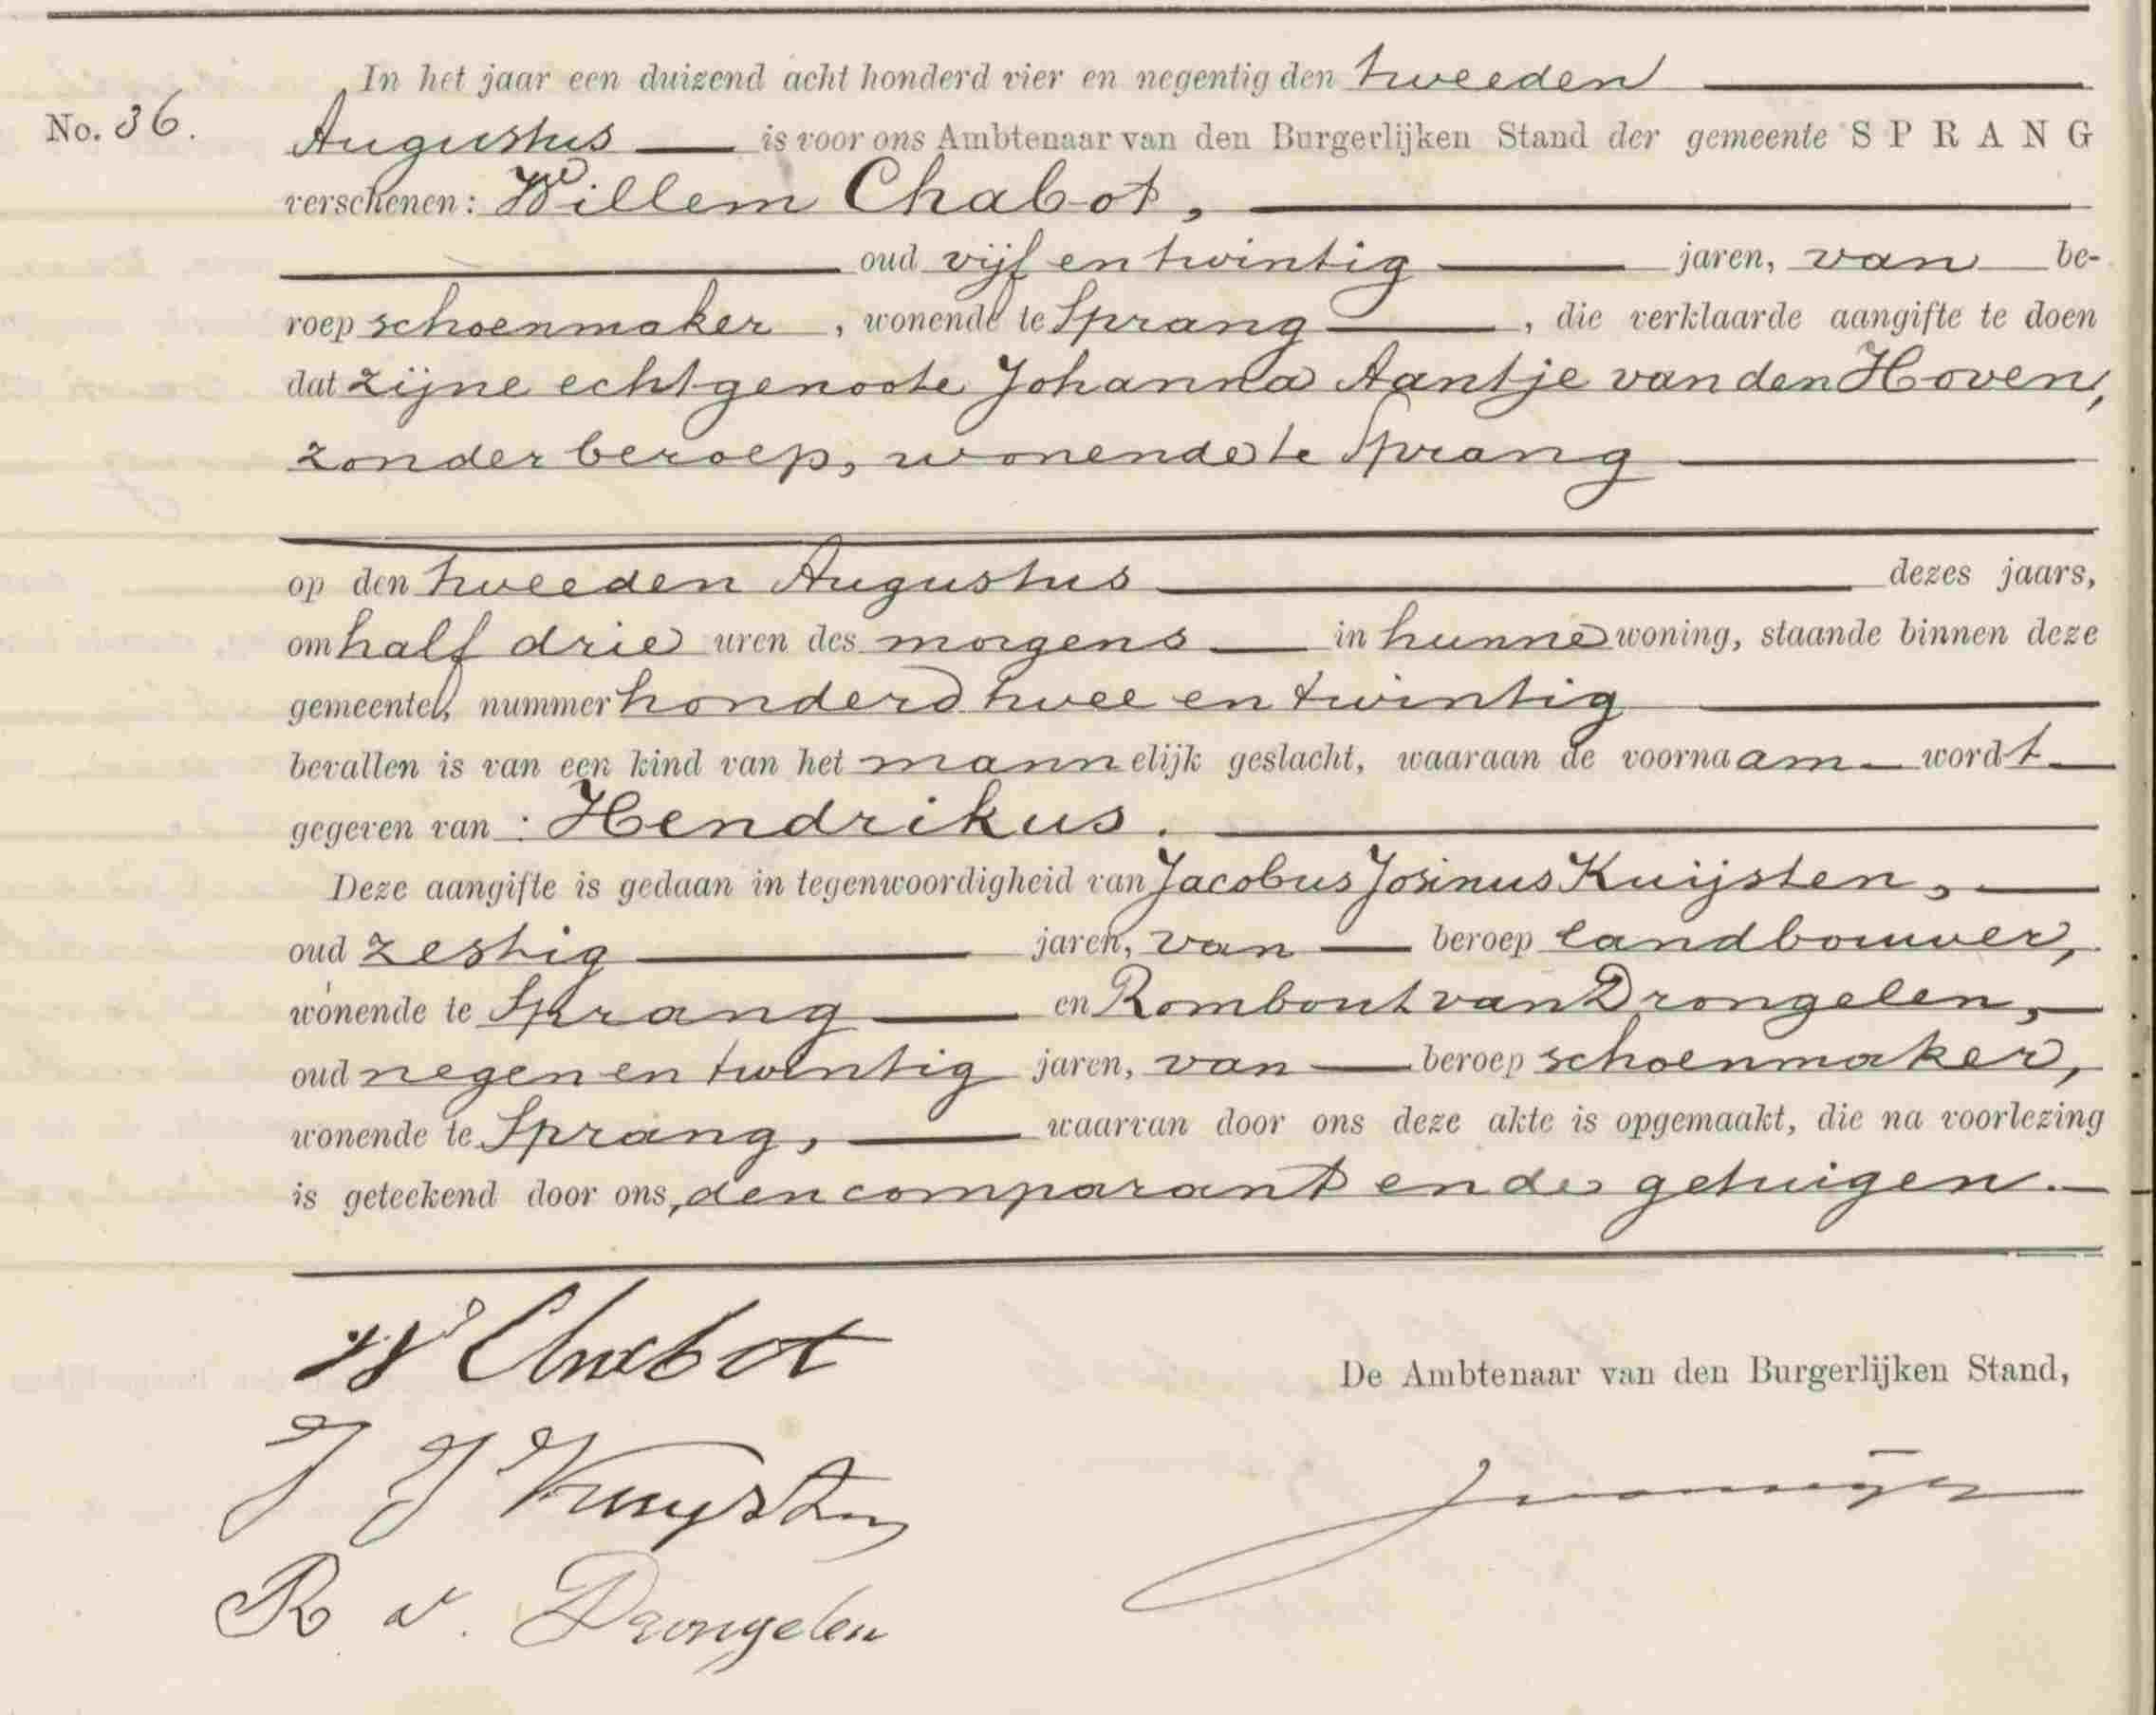 In het jaar een duizend acht honderd vier en negentig den tweeden
No. 36.
Augustus is voor ons Ambtenaar van den Burgerlijken Stand der gemeente SPRANG
verschenen: Willem Chabot,
oud vijf en twintig jaren, van be-
roep schoenmaker, wonende te Sprang, die verklaarde aangifte te doen
dat zijne echtgenoote Johanna Aantje van den Hoven,
zonder beroep, wonende te Sprang
op den tweeden Augustus dezes jaars,
om half drie uren des morgens in hunne woning, staande binnen deze
gemeente, nummer honderd twee en twintig
bevallen is van een kind van het mannelijk geslacht, waaraan de voornaam wordt
gegeven van : Hendrikus.
Deze aangifte is gedaan in tegenwoordigheid van Jacobus Josinus Kuijsten,
oud zestig jaren, van beroep landbouwer,
wonende te Sprang en Rombout van Drongelen,
oud negen en twintig jaren, van beroep schoenmaker,
wonende te Sprang, waarvan door ons deze akte is opgemaakt, die na voorlezing
is geteekend door ons, den comparant en de getuigen.
W Chabot
De Ambtenaar van den Burgerlijken Stand,
J J Kuysten
R v. Drongelen